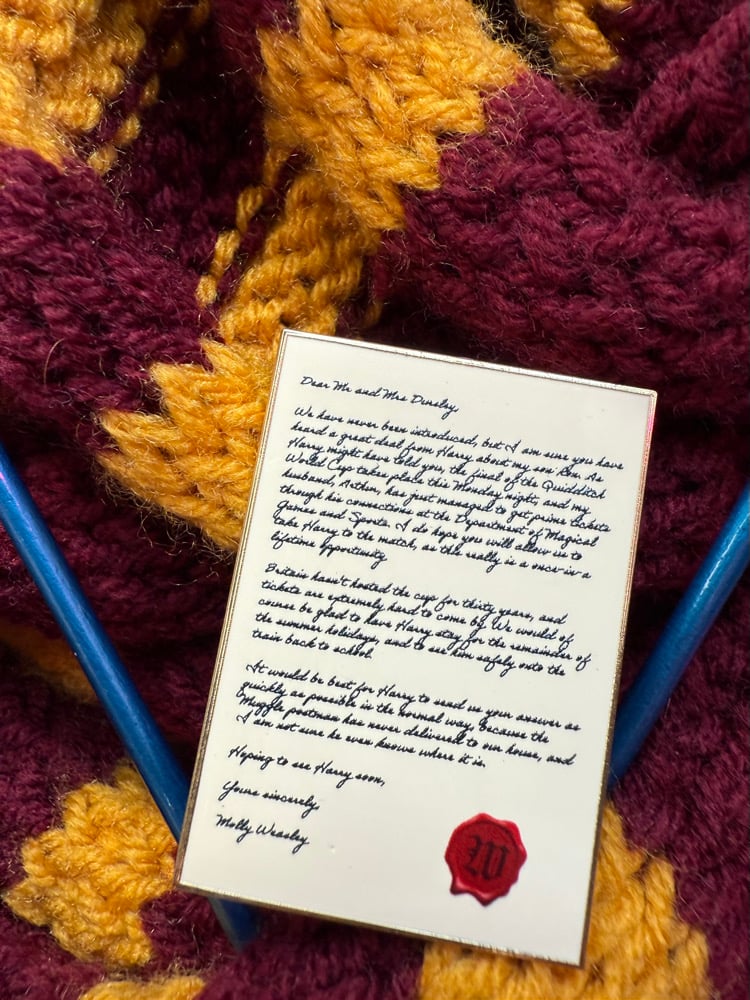 Dear Mr and Mrs Dursley,
We have never been introduced, but I am sure you have
heard a great deal from Harry about my son Ron. As
Harry might have told you, the final of the Quidditch
World Cup takes place this Monday night, and my
husband, Arthur, has just managed to get prime tickets
through his connections at the Department of Magical
Games and Sports. I do hope you will allow us to
take Harry to the match, as this really is a once-in-a
lifetime opportunity
Britain hasn't hosted the cup for thirty years, and
tickets are extremely hard to come by. We would of
course be glad to have Harry stay for the remainder of
the summer holidays, and to see him safely onto the
train back to school.
It would be best for Harry to send us your answer as
quickly as possible in the normal way, because the
Muggle postman has never delivered to our house, and
I am not sure he even knows where it is.
Hoping to see Harry soon,
Yours sincerely,
Molly Weasley
W